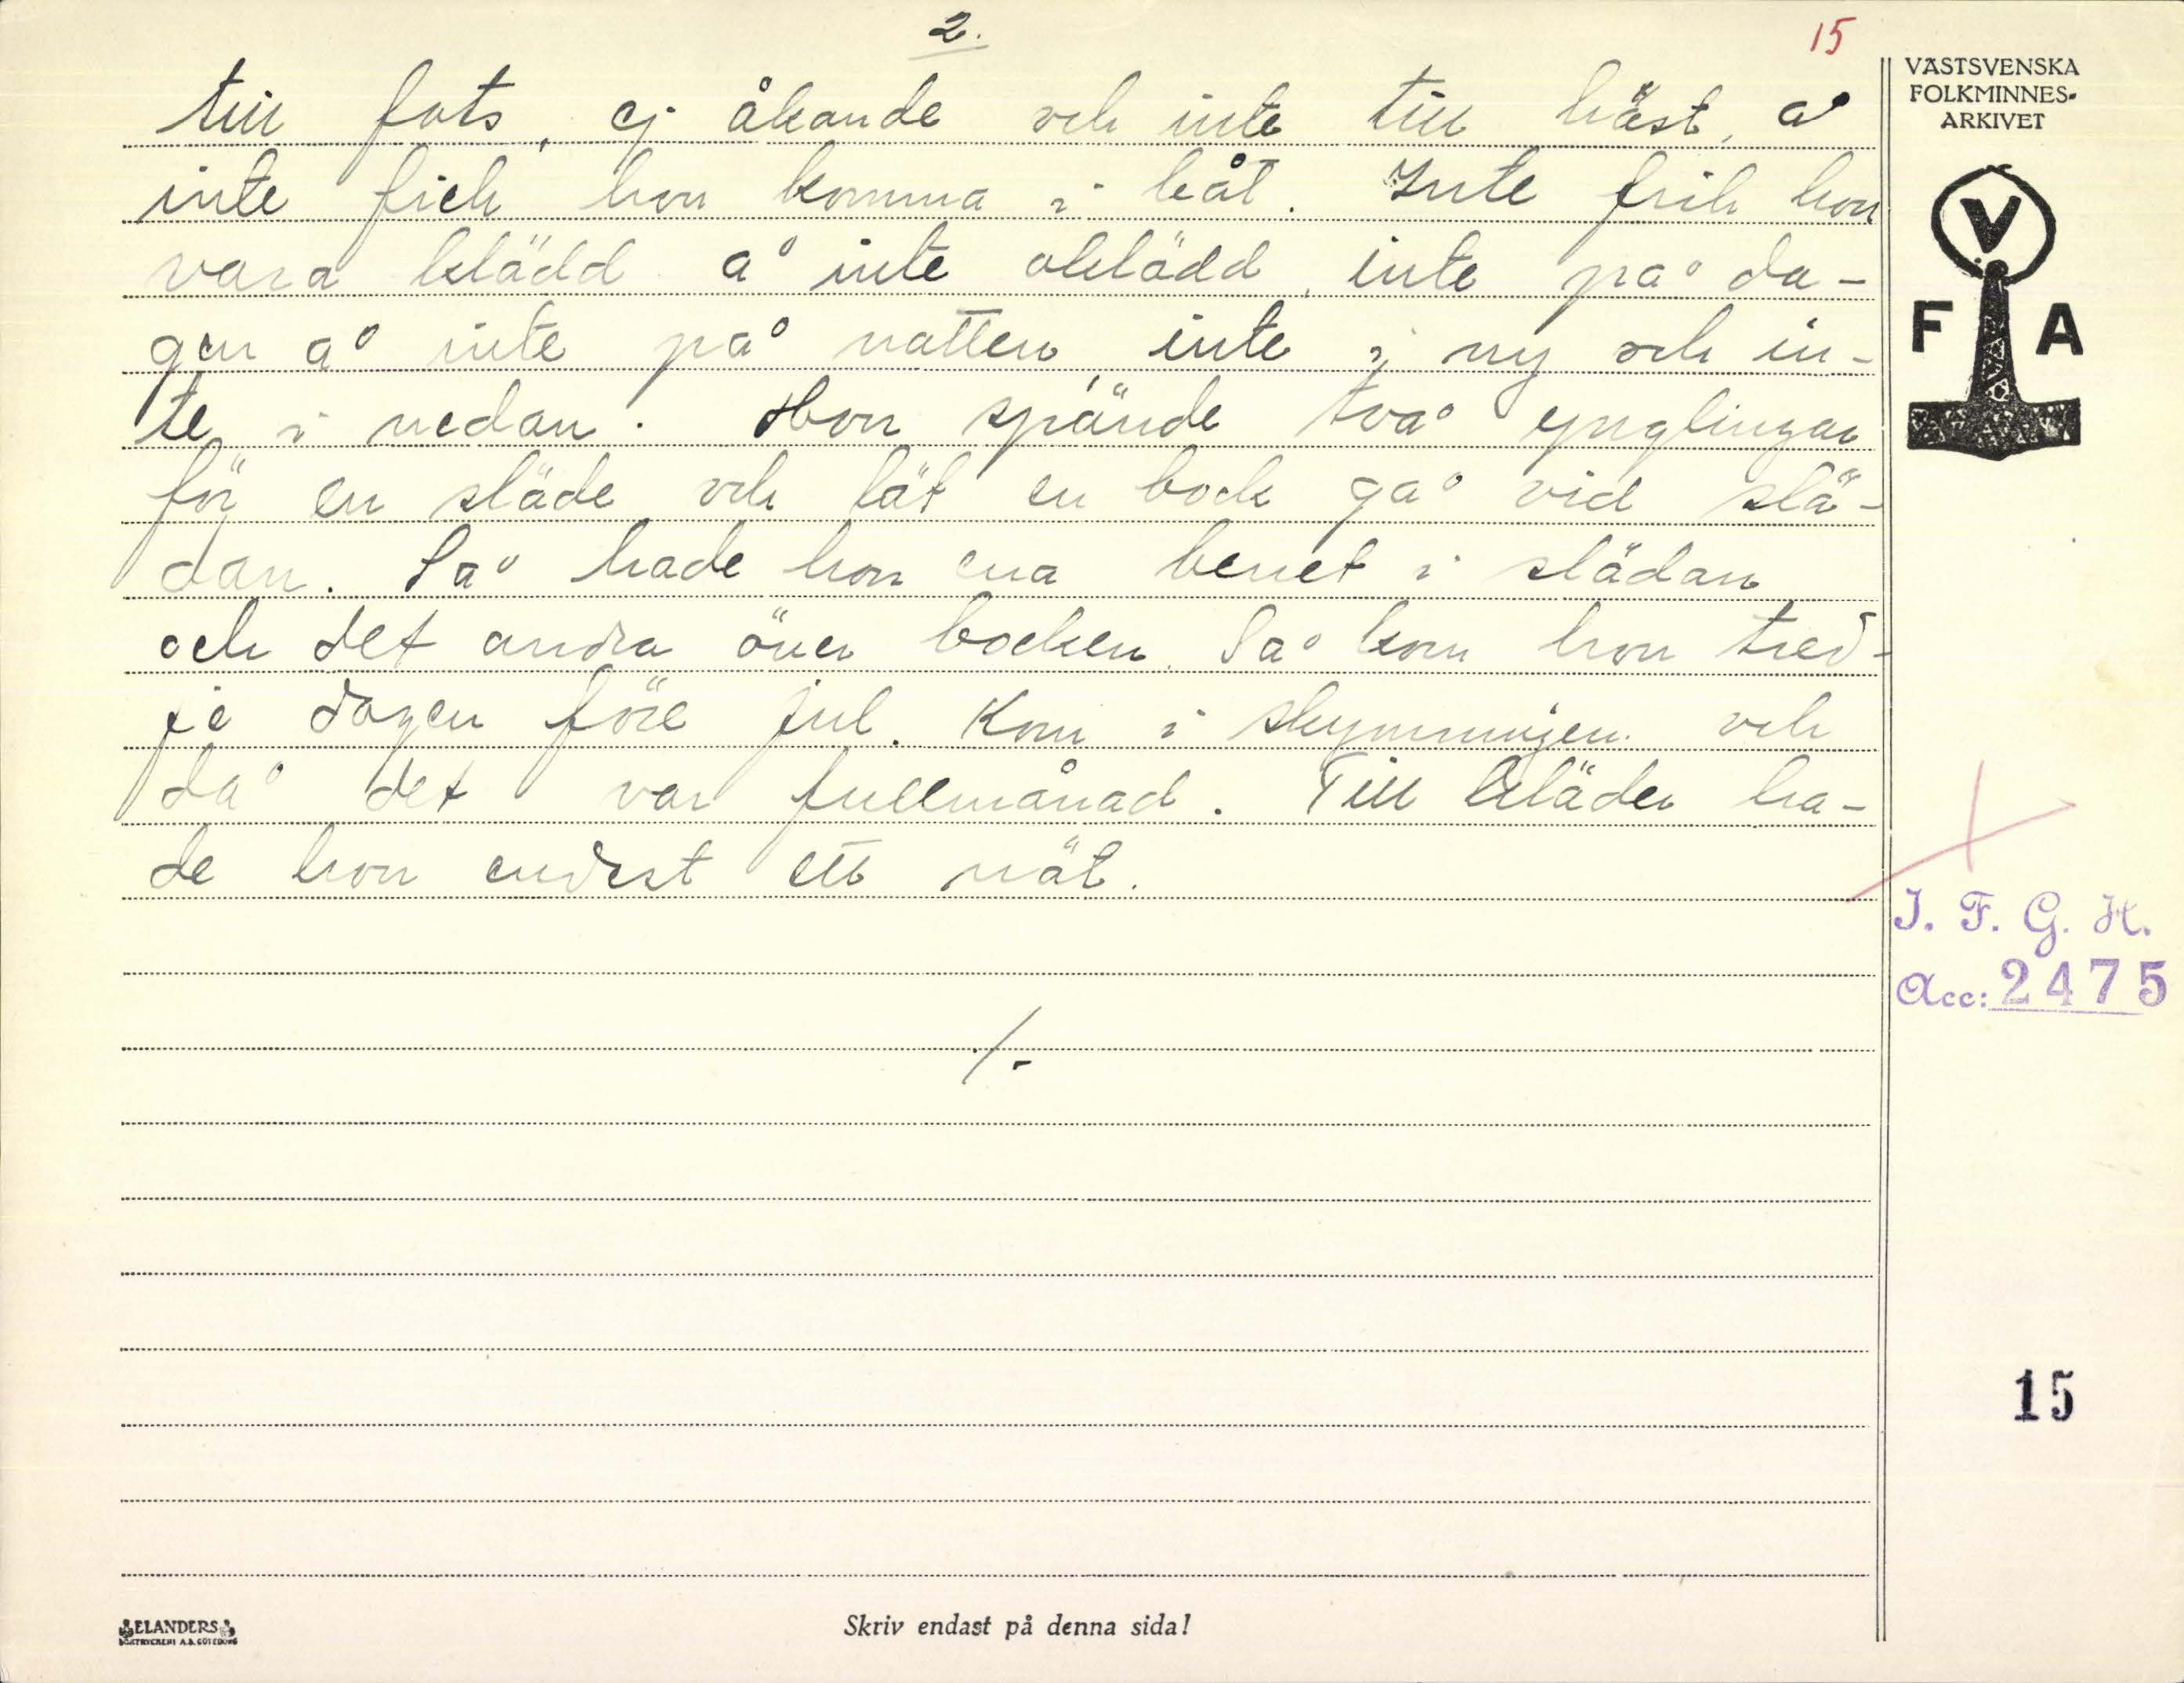 2.
15
till fots, ej åkande och inte till häst, å
inte fick hon komma i båt. Inte fick hon
vara klädd å inte oklädd, inte på da-
gen å inte på natten, inte i ny och in-
te i nedan. Hon spände två ynglingar
för en släde och lät en bock gå vid slä-
dan. Så hade hon ena benet i slädan
och det andra över bocken. Så kom hon tred-
je dagen före jul. Kom i skymningen och
då det var fullmånad. Till kläder ha-
de hon endast ett nät.
/-
VÄSTSVENSKA
FOLKMINNES-
ARKIVET
V
F A
I. F. G. H.
Acc: 2475
15
ELANDERS
BOKTRYCKERI A.B. GÖTEBORG
Skriv endast på denna sida!